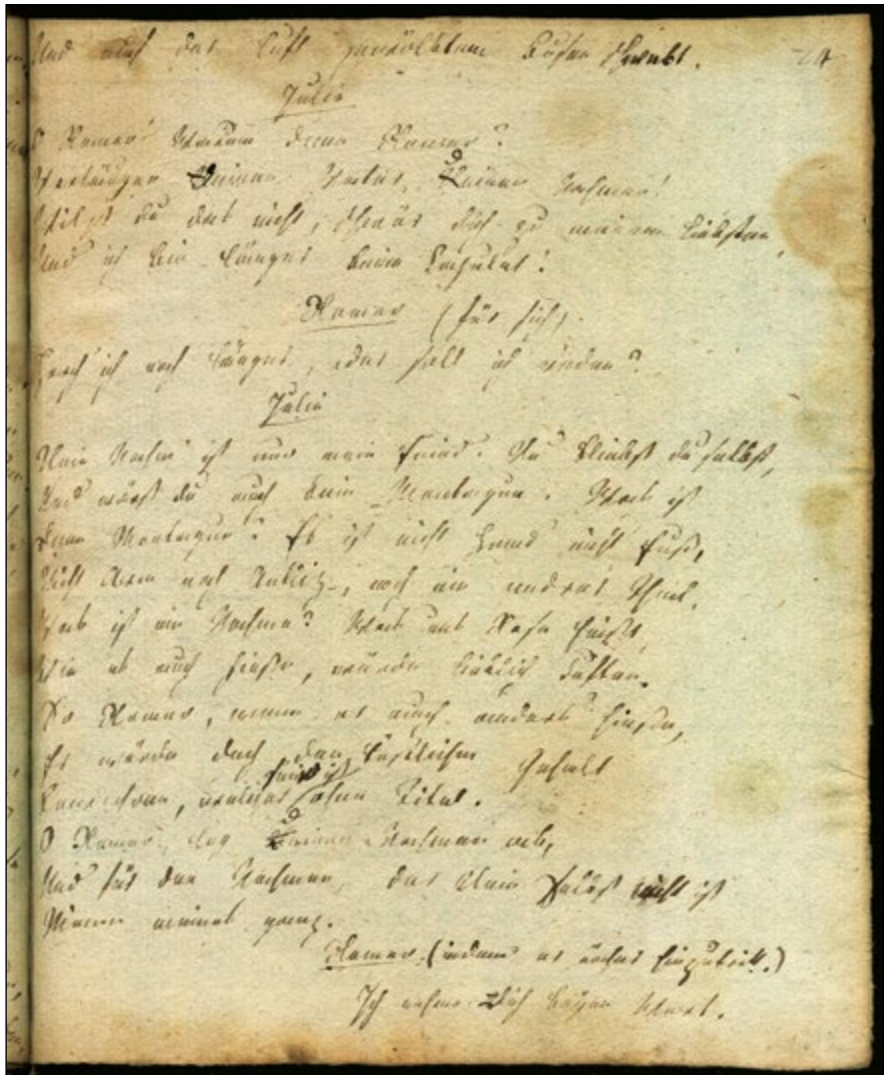 Und auf der Luft gewölbtem Busen schwebt. 24
Julia
O Romeo! Warum denn Romeo?
Verläugne Deinen Vater, Deinen Nahmen!
Willst du das nicht, schwör dich zu meinem Liebsten,
Und ich bin länger keine Capulet!
Romeo (für sich).
Horch' ich noch länger, oder soll ich reden?
Julia
Dein Nahm' ist nur mein Feind. Du bliebst du selbst,
Und wärst du auch kein Montague. Was ist
Denn Montague? Es ist nicht Hand nicht Fuß,
Nicht Arm noch Antlitz, noch ein andrer Theil.
Was ist ein Nahme? Was uns Rose heißt,
Wie es auch hieße, würde lieblich duften.
So Romeo, wenn er auch anders hieße,
Er würde doch den köstlichen Gehalt
Bewahren, welcher sein ist ohne Titel.
O Romeo, leg Deinen Nahmen ab,
Und für den Nahmen, der Dein Selbst nicht ist
Nimm meines ganz.
Romeo (indem er näher hinzutritt.)
Ich nehme Dich beym Wort.